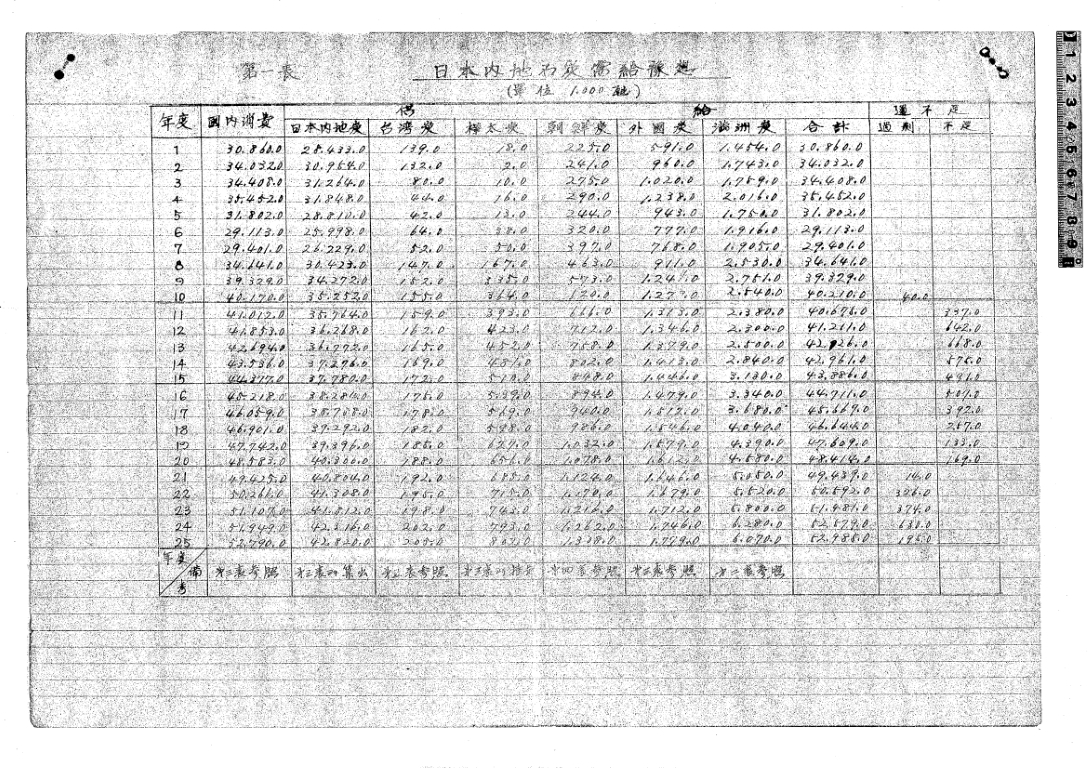 第一表 日本内地石炭需給豫想
(單位 1.000 瓲)
年度 國内消費 供給 過不足
日本内地炭 台湾炭 樺太炭 朝鮮炭 外國炭 満洲炭 合計 過剰 不足
1 30.860.0 28.433.0 139.0 18.0 225.0 591.0 1.454.0 30.860.0
2 34.032.0 30.954.0 132.0 2.0 241.0 960.0 1.743.0 34.032.0
3 34.408.0 31.264.0 80.0 10.0 275.0 1.020.0 1.759.0 34.408.0
4 35.452.0 31.848.0 44.0 16.0 290.0 1.238.0 2.016.0 35.452.0
5 31.802.0 28.810.0 42.0 13.0 244.0 943.0 1.750.0 31.802.0
6 29.113.0 25.998.0 64.0 38.0 320.0 777.0 1.916.0 29.113.0
7 29.401.0 26.229.0 52.0 50.0 397.0 768.0 1.905.0 29.401.0
8 34.641.0 30.423.0 147.0 167.0 463.0 911.0 2.530.0 34.641.0
9 39.329.0 34.272.0 152.0 335.0 573.0 1.246.0 2.751.0 39.329.0
10 40.170.0 35.252.0 155.0 364.0 1.279.0 2.540.0 40.210.0 40.0
11 41.012.0 35.764.0 159.0 393.0 666.0 1.313.0 2.380.0 40.675.0 337.0
12 41.853.0 36.268.0 162.0 423.0 712.0 1.346.0 2.300.0 41.211.0 642.0
13 42.694.0 36.772.0 165.0 452.0 758.0 1.379.0 2.500.0 42.026.0 668.0
14 43.536.0 37.276.0 169.0 481.0 802.0 1.413.0 2.840.0 42.961.0 575.0
15 44.377.0 37.780.0 172.0 510.0 848.0 1.446.0 3.130.0 43.886.0 491.0
16 45.218.0 38.284.0 175.0 539.0 894.0 1.479.0 3.340.0 44.711.0 507.0
17 46.059.0 38.788.0 178.0 569.0 940.0 1.512.0 3.680.0 45.667.0 392.0
18 46.901.0 39.292.0 182.0 598.0 986.0 1.546.0 4.040.0 46.644.0 257.0
19 47.742.0 39.796.0 185.0 627.0 1.032.0 1.579.0 4.390.0 47.609.0 133.0
20 48.583.0 40.300.0 188.0 656.0 1.078.0 1.612.0 4.580.0 48.414.0 169.0
21 49.425.0 40.804.0 192.0 685.0 1.124.0 1.646.0 5.050.0 49.439.0 14.0
22 50.266.0 41.308.0 195.0 715.0 1.170.0 1.679.0 5.520.0 50.592.0 326.0
23 51.107.0 41.812.0 198.0 743.0 1.216.0 1.712.0 5.800.0 51.481.0 374.0
24 51.949.0 42.316.0 202.0 773.0 1.262.0 1.746.0 6.280.0 52.579.0 630.0
25 52.790.0 42.820.0 205.0 802.0 1.308.0 1.779.0 6.070.0 52.985.0 195.0
年度 備考 才二表参照 才三表ヨリ算出 参照 才四表参照 参照 参照
1 2 3 4 5 6 7 8 9